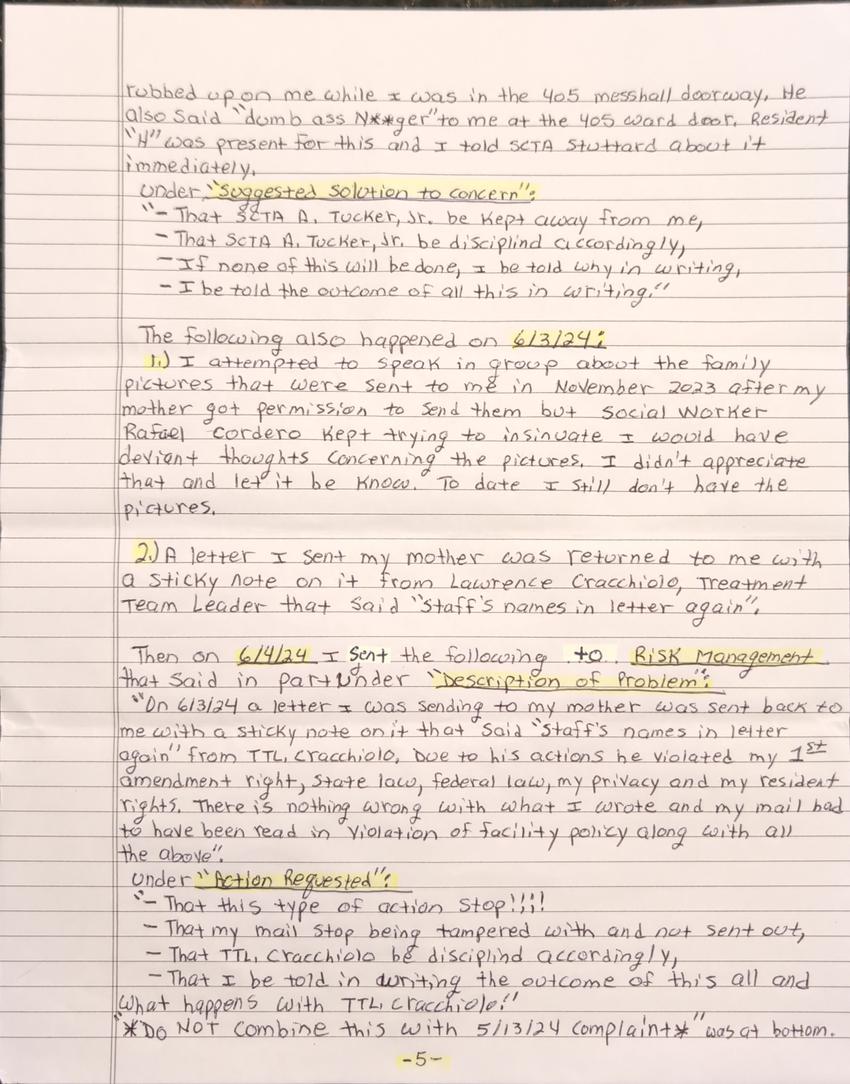 rubbed upon me while I was in the 405 messhall doorway. He
also said "dumb ass N**ger" to me at the 405 ward door. Resident
"H" was present for this and I told SCTA Stuttard about it
immediately.
Under "Suggested Solution to concern":
"- That SCTA A. Tucker, Jr. be kept away from me,
- That SCTA A. Tucker, Jr. be disciplind accordingly,
- If none of this will be done, I be told why in writing,
- I be told the outcome of all this in writing."
The following also happened on 6/3/24:
1.) I attempted to speak in group about the family
pictures that were sent to me in November 2023 after my
mother got permission to send them but Social Worker
Rafael Cordero kept trying to insinuate I would have
deviant thoughts concerning the pictures. I didn't appreciate
that and let it be known. To date I still don't have the
pictures.
2.) A letter I sent my mother was returned to me with
a sticky note on it from Lawrence Cracchiolo, Treatment
Team Leader that said "Staff's names in letter again".
Then on 6/4/24 I sent the following to Risk Management
that said in part under "Description of Problem":
"On 6/3/24 a letter I was sending to my mother was sent back to
me with a sticky note on it that said "Staff's names in letter
again" from TTL Cracchiolo. Due to his actions he violated my 1st
amendment right, state law, federal law, my privacy and my resident
rights. There is nothing wrong with what I wrote and my mail had
to have been read in violation of facility policy along with all
the above".
Under "Action Requested":
"- That this type of action stop!!!!
- That my mail stop being tampered with and not sent out,
- That TTL Cracchiolo be disciplind accordingly,
- That I be told in writing the outcome of this all and
what happens with TTL Cracchiolo!"
"*DO NOT combine this with 5/13/24 complaint*" was at bottom.
-5-